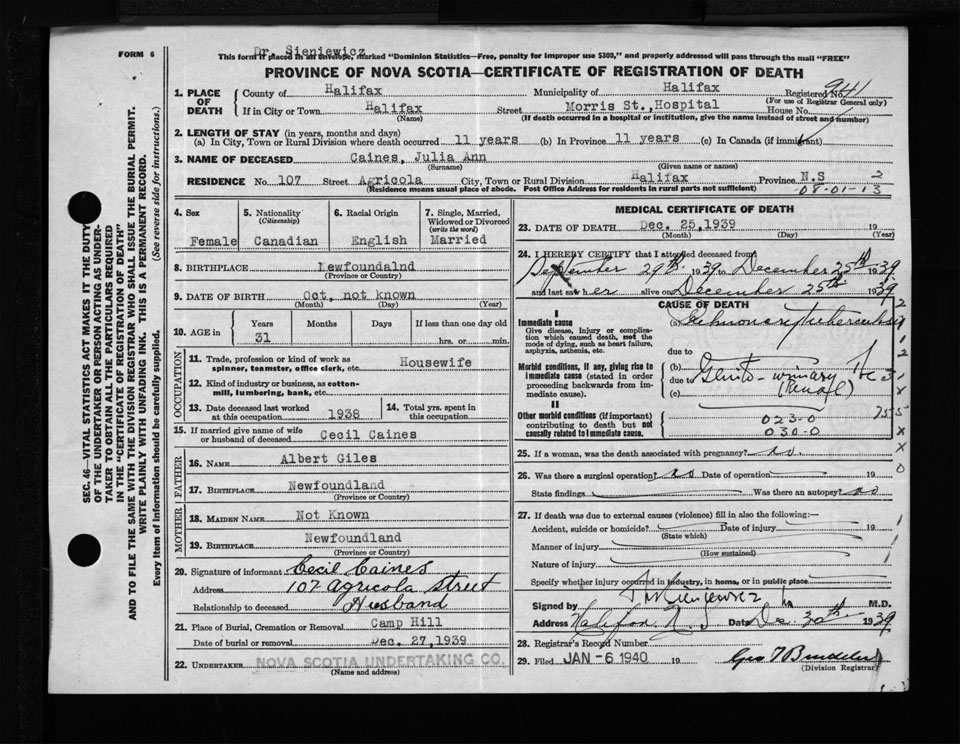 FORM 6
Dr. Sieniewicz
This form if placed in an envelope, marked "Dominion Statistics—Free, penalty for improper use $300," and properly addressed will pass through the mail "FREE"
PROVINCE OF NOVA SCOTIA—CERTIFICATE OF REGISTRATION OF DEATH
1. PLACE OF DEATH
County of Halifax Municipality of Halifax Registered No. 941
(For use of Registrar General only)
If in City or Town Halifax Street Morris St., Hospital House No.
(Name) (If death occurred in a hospital or institution, give the name instead of street and number)
2. LENGTH OF STAY (in years, months and days)
(a) In City, Town or Rural Division where death occurred 11 years (b) In Province 11 years (c) In Canada (if immigrant)
3. NAME OF DECEASED Caines, Julia Ann
(Surname) (Given name or names)
RESIDENCE No. 107 Street Agricola City, Town or Rural Division Halifax Province N.S 2
(Residence means usual place of abode. Post Office Address for residents in rural parts not sufficient) 08-01-13
4. Sex
Female
5. Nationality
(Citizenship)
Canadian
6. Racial Origin
English
7. Single, Married, Widowed or Divorced
(write the word)
Married
8. BIRTHPLACE Lewfoundalnd
(Province or Country)
9. DATE OF BIRTH Oct, not known
(Month) (Day) (Year)
10. AGE in
Years Months Days If less than one day old
31 hrs. or min.
OCCUPATION
11. Trade, profession or kind of work as spinner, teamster, office clerk, etc. Housewife
12. Kind of industry or business, as cotton-mill, lumbering, bank, etc.
13. Date deceased last worked at this occupation 1938
14. Total yrs. spent in this occupation
15. If married give name of wife or husband of deceased Cecil Caines
FATHER
16. NAME Albert Giles
17. BIRTHPLACE Newfoundland
(Province or Country)
MOTHER
18. MAIDEN NAME Not Known
19. BIRTHPLACE Newfoundland
(Province or Country)
20. Signature of informant Cecil Caines
Address 107 Agricola Street
Relationship to deceased Husband
21. Place of Burial, Cremation or Removal Camp Hill
Date of burial or removal Dec. 27, 1939
22. UNDERTAKER NOVA SCOTIA UNDERTAKING CO.
(Name and address)
MEDICAL CERTIFICATE OF DEATH
23. DATE OF DEATH Dec. 25, 1939
(Month) (Day) (Year)
24. I HEREBY CERTIFY that I attended deceased from
September 29th 1939 to December 25th 1939
and last saw her alive on December 25th 1939
CAUSE OF DEATH
I
Immediate cause
Give disease, injury or complication which caused death, not the mode of dying, such as heart failure, asphyxia, asthenia, etc.
(a) Pulmonary Tuberculosis
due to
Morbid conditions, if any, giving rise to immediate cause (stated in order proceeding backwards from immediate cause).
(b) Genito-urinary
due to
(c) (Renal)
II
Other morbid conditions (if important) contributing to death but not causally related to immediate cause.
023-0
030-0
25. If a woman, was the death associated with pregnancy? no.
26. Was there a surgical operation? no Date of operation 19
State findings Was there an autopsy? no
27. If death was due to external causes (violence) fill in also the following:—
Accident, suicide or homicide? Date of injury 19
(State which)
Manner of injury
(How sustained)
Nature of injury
Specify whether injury occurred in industry, in home, or in public place
Signed by Sieniewicz M.D.
Address Halifax N.S Date Dec. 30th 1939
28. Registrar's Record Number
29. Filed JAN -6 1940 19
(Division Registrar)
SEC. 46—VITAL STATISTICS ACT MAKES IT THE DUTY
OF THE UNDERTAKER OR PERSON ACTING AS UNDER-
TAKER TO OBTAIN ALL THE PARTICULARS REQUIRED
IN THE "CERTIFICATE OF REGISTRATION OF DEATH"
AND TO FILE THE SAME WITH THE DIVISION REGISTRAR WHO SHALL ISSUE THE BURIAL PERMIT.
WRITE PLAINLY WITH UNFADING INK. THIS IS A PERMANENT RECORD.
Every item of information should be carefully supplied. (See reverse side for instructions.)